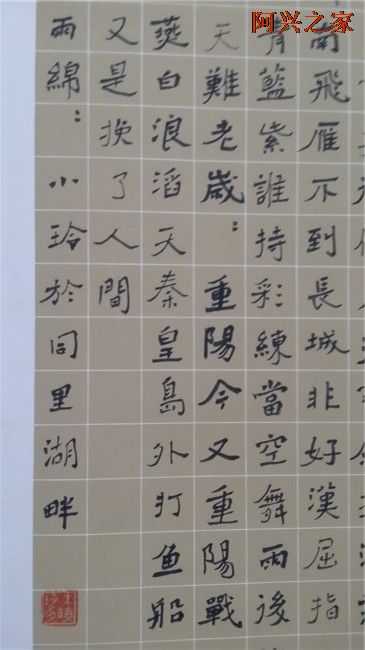 阿兴之家
南飛雁不到長城非好漢屈指
青藍紫誰持彩練當空舞雨後
天難老歲：重陽今又重陽戰
燕白浪滔天秦皇島外打鱼船
又是换了人間
雨綿：小玲於同里湖畔